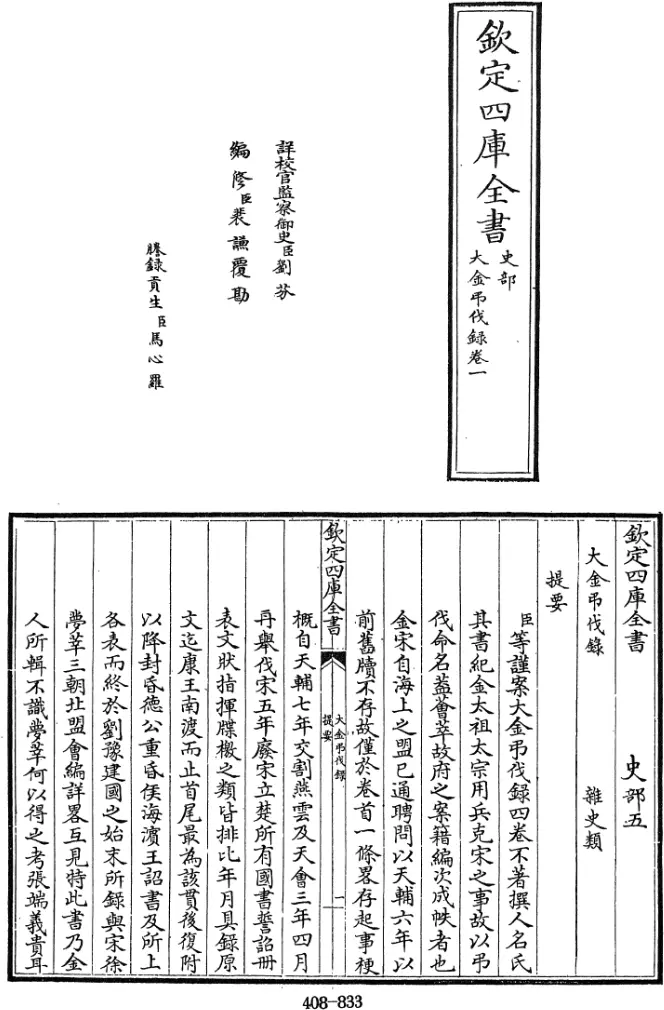 欽定四庫全書
史部
大金弔伐録卷一
詳校官監察御史臣劉芬
編修臣裴謙覆勘
謄録貢生臣馬心羅
欽定四庫全書 史部五
大金弔伐錄 雜史類
提要
臣等謹案大金弔伐録四卷不著撰人名氏
其書紀金太祖太宗用兵克宋之事故以弔
伐命名葢薈萃故府之案籍編次成帙者也
金宋自海上之盟已通聘問以天輔六年以
前舊牘不存故僅於卷首一條畧存起事梗
欽定四庫全書
大金弔伐録
提要
一
概自天輔七年交割燕雲及天會三年四月
再舉伐宋五年廢宋立楚所有國書誓詔冊
表文狀指揮牒檄之類皆排比年月具録原
文迄康王南渡而止首尾最為該貫後復附
以降封昏德公重昏侯海濱王詔書及所上
各表而終於劉豫建國之始末所録與宋徐
夢莘三朝北盟會編詳畧互見特此書乃金
人所輯不識夢莘何以得之考張端義貴耳
408-833